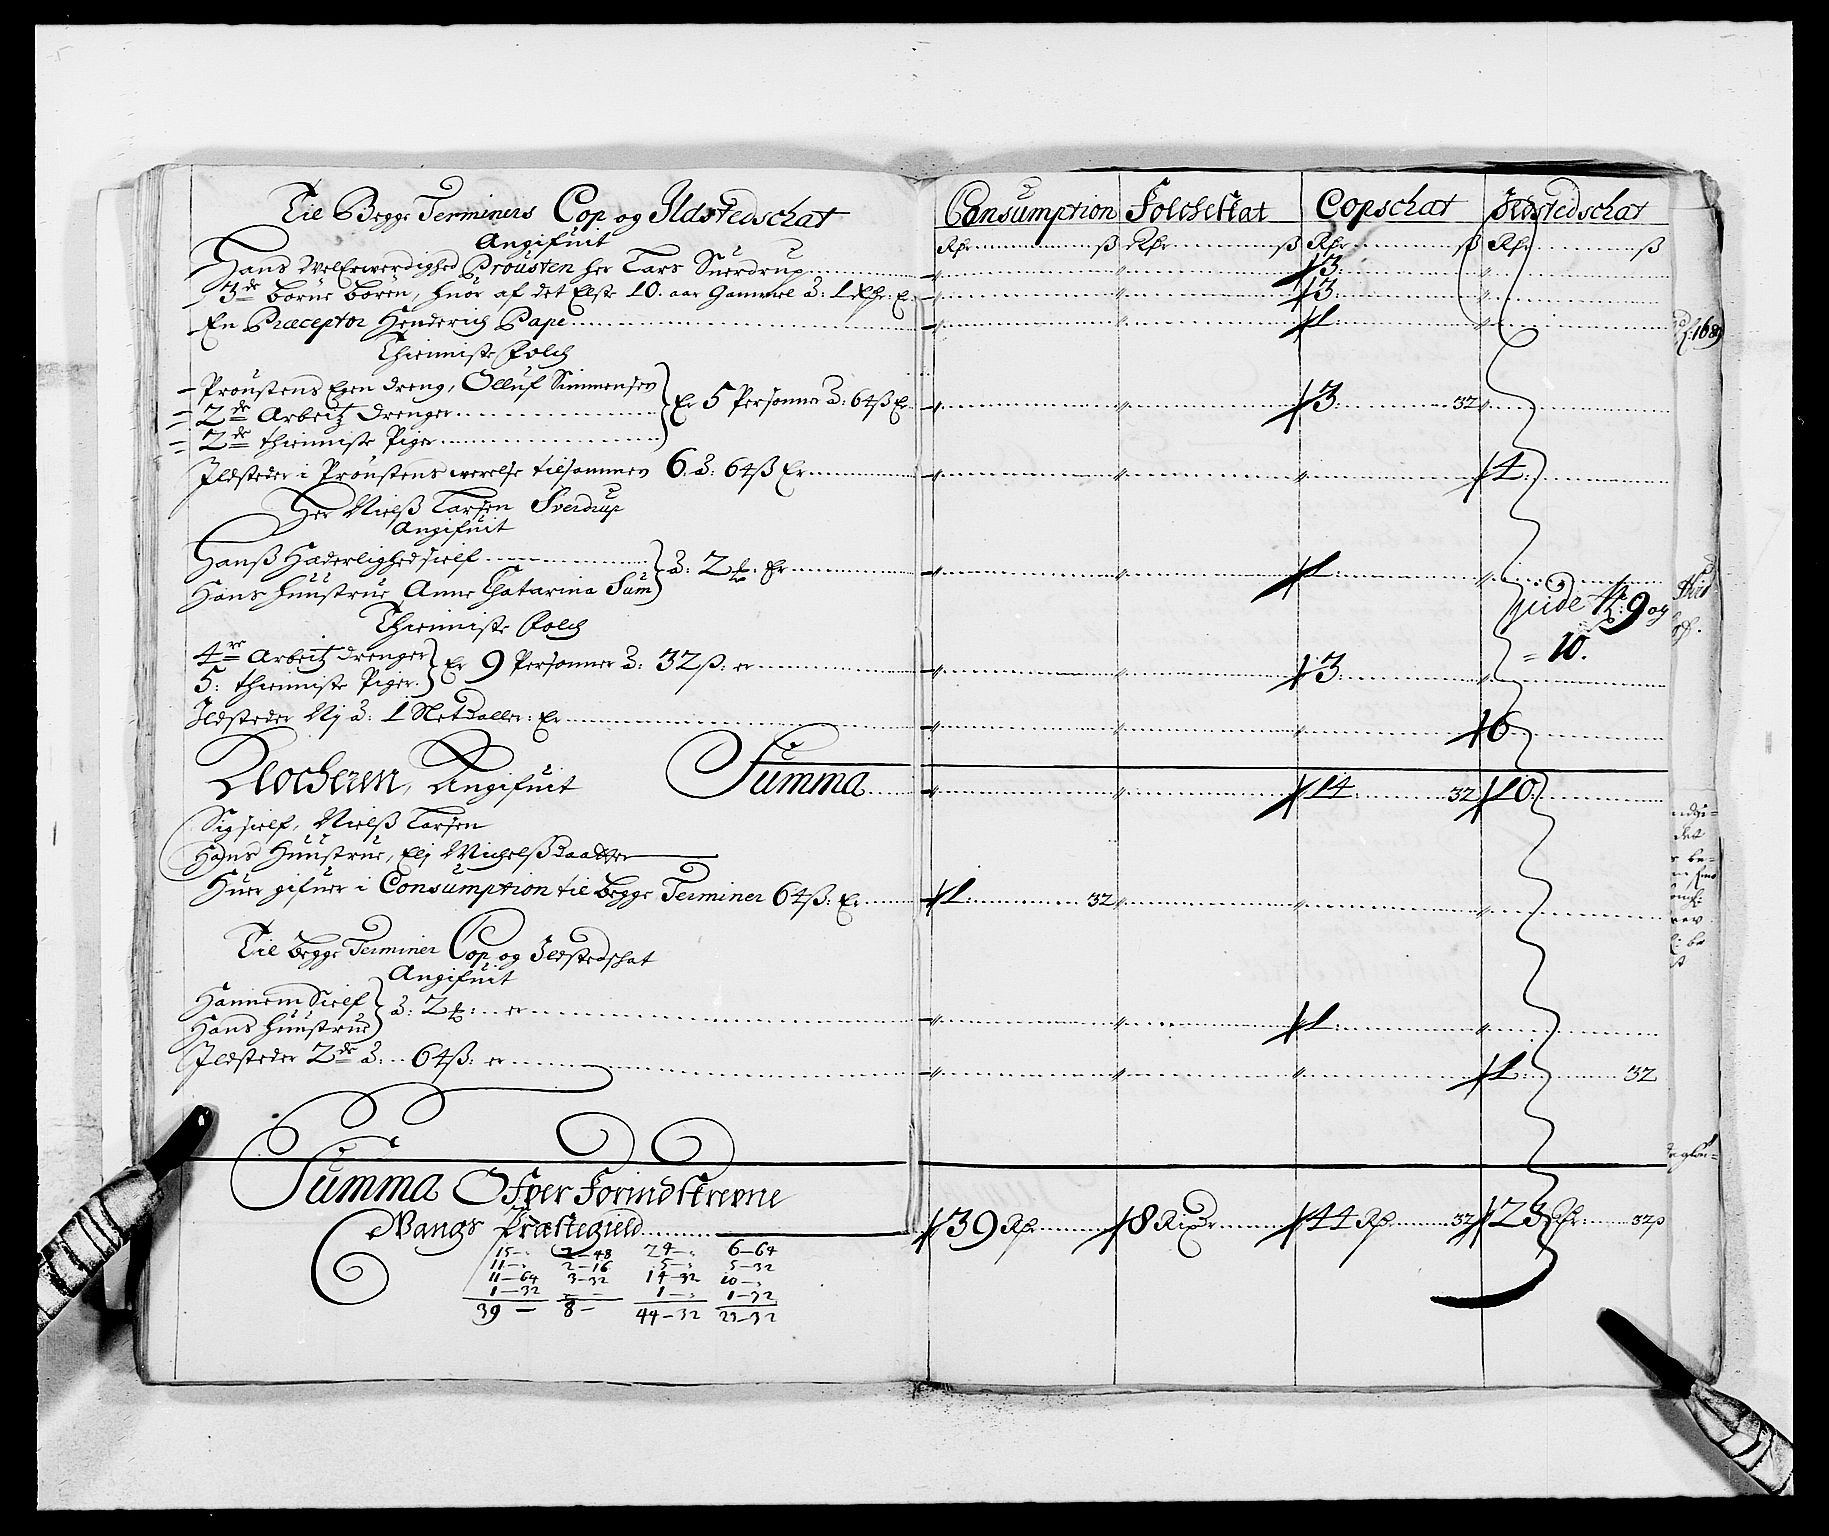 Til Begge Terminers Cop og Ildstedschat
Angifuit
Hans WelErwerdighed Prousten her Lars Suerdrup
3de Børne Børen, huor af det Elste 10. aar Gammel à: 1 Rdr: Er
En Præceptor Henderich Pape
Thienniste Folch
- Proustens Egen dreng, Olluf Simmensen
= 2de Arbeitz drenger
= 2de thienniste Piger
Er 5 Personner à: 64ß Er
Ildsteder i Proustens werelse tilsammen 6. à: 64ß Er
Her Nielß Larsen Sverdrup
Angifuit
Hanß Hæderlighed sielf
Hans Huustrue Anne Chatarina Sum
à: 2 Er
Thienniste Folch
4re Arbeitz drenger
5: thienniste Piger
Er 9 Personner à: 32ß: er
Ildsteder Nj à: 1 Sletdaller: Er
Clocheren, Angifuit Summa
Sig sielf, Nielß Larsen
Hans Huustrue, Elj Michelßdaatter
Huer gifuer i Consumption til begge Terminer 64ß: Er
Til begge Terminer Cop og Ildstedschat
Angifuit
Hannem Sielf
Hans Huustrue
à: 2 er
Ildsteder 2de à: 64ß: er
Summa Ofver forindskrevne
Wangs Præstegield
15 — 2—48 24 — 6—64
11 — 2—16 5 — 5—32
11—64 3—32 14—32 10 —
1—32 — 1 — 1—32
39 — 8— 44—32 23—32
Consumption Folcheskat Copschat Ildstedschat
Rdr ß Rdr ß Rdr ß Rdr ß
3
3
1
3 32
4
1
vide N: 9 og
= 10.
3
6
14 32 10
1 32
1
1 32
39 Rdr 8 Rixdr 44 Rdr 32 23 Rdr 32ß